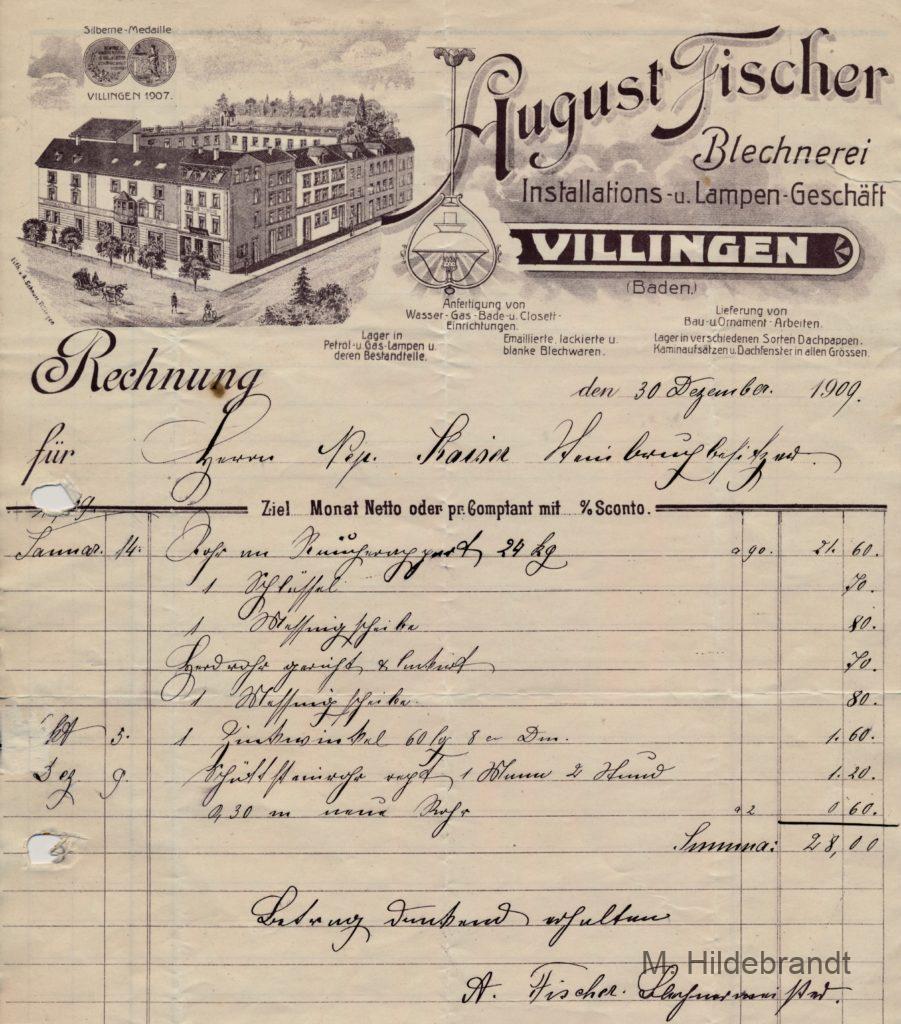 Silberne-Medaille
VILLINGEN 1907.
August Fischer
Blechnerei
Installations-u. Lampen-Geschäft
VILLINGEN
(Baden.)
Anfertigung von
Wasser-Gas-Bade-u. Closett-
Einrichtungen.
Lieferung von
Bau-u. Ornament-Arbeiten.
Lager in
Petrol-u. Gas-Lampen u.
deren Bestandteile.
Emaillierte, lackierte u.
blanke Blechwaren.
Lager in verschiedenen Sorten Dachpappen.
Kaminaufsätzen u. Dachfenster in allen Grössen.
Rechnung
den 30 Dezember. 1909.
für Herrn Nep. Kaiser Steinbruchbesitzer.
Ziel Monat Netto oder pr. Comptant mit % Sconto.
Januar. 14. Rohr an 24 kg a 90. 21. 60.
1 Schlüssel 70.
1 Messingscheibe 80.
Herdrohr gericht & lackirt 70.
1 Messingscheibe. 80.
5. 1 Zinkwinkel 8 Dm. 1. 60.
Dez 9. Schüttsteinrohr rept 1 Mann 2 Stund 1. 20.
0,30 m neue Rohr a 2 0 60.
Summa: 28,00
Betrag dankend erhalten
M. Hildebrandt
A. Fischer. Blechnermeister.